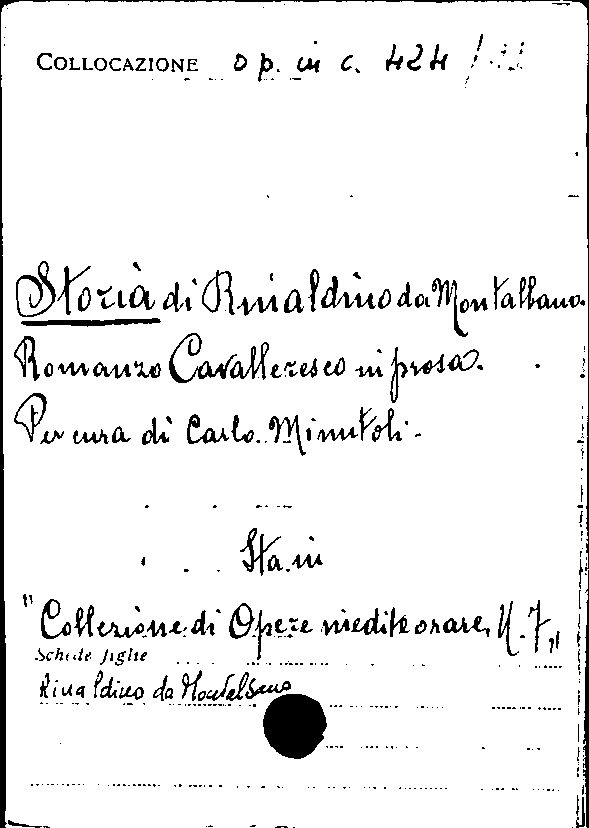 COLLOCAZIONE op. in c. 424 /
Storia di Rinaldino da Montalbano.
Romanzo Cavalleresco in prosa.
Per cura di Carlo Minutoli.
Sta in
"Collezione di Opere inedite o rare, N. 7"
Schede figlie
Rinaldino da Montalbano